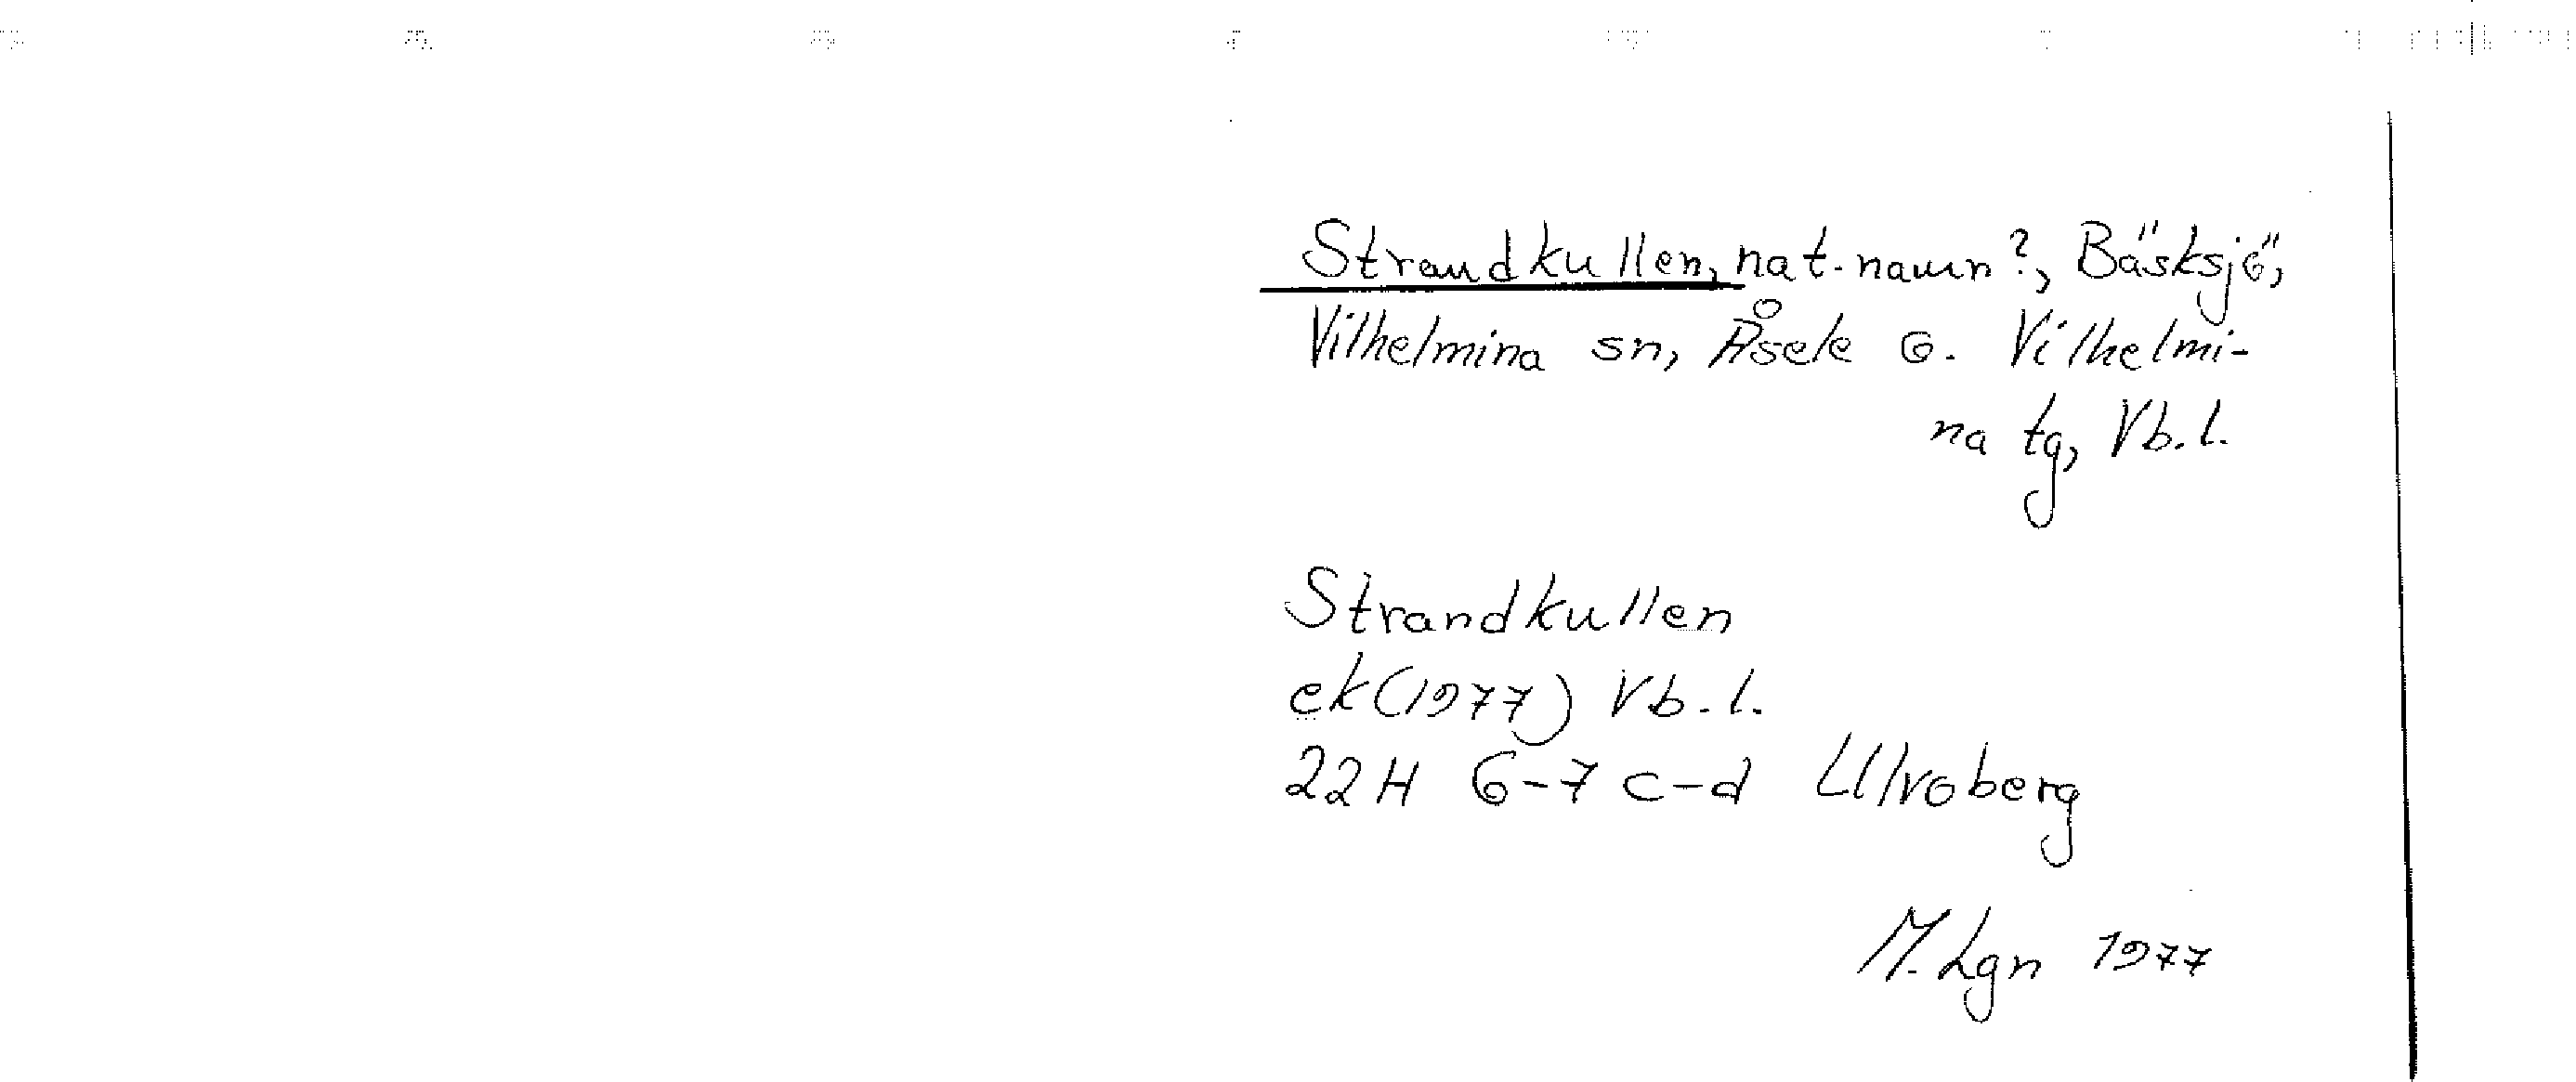 Strandkullen, nat.namn?, Bäsksjö,
Vilhelmina sn, Åsele o. Vilhelmi-
na tg, Vb.l.
Strandkullen
ek(1977) Vb.l.
22H 6-7 c-d Ulvoberg
M. Lgn 1977